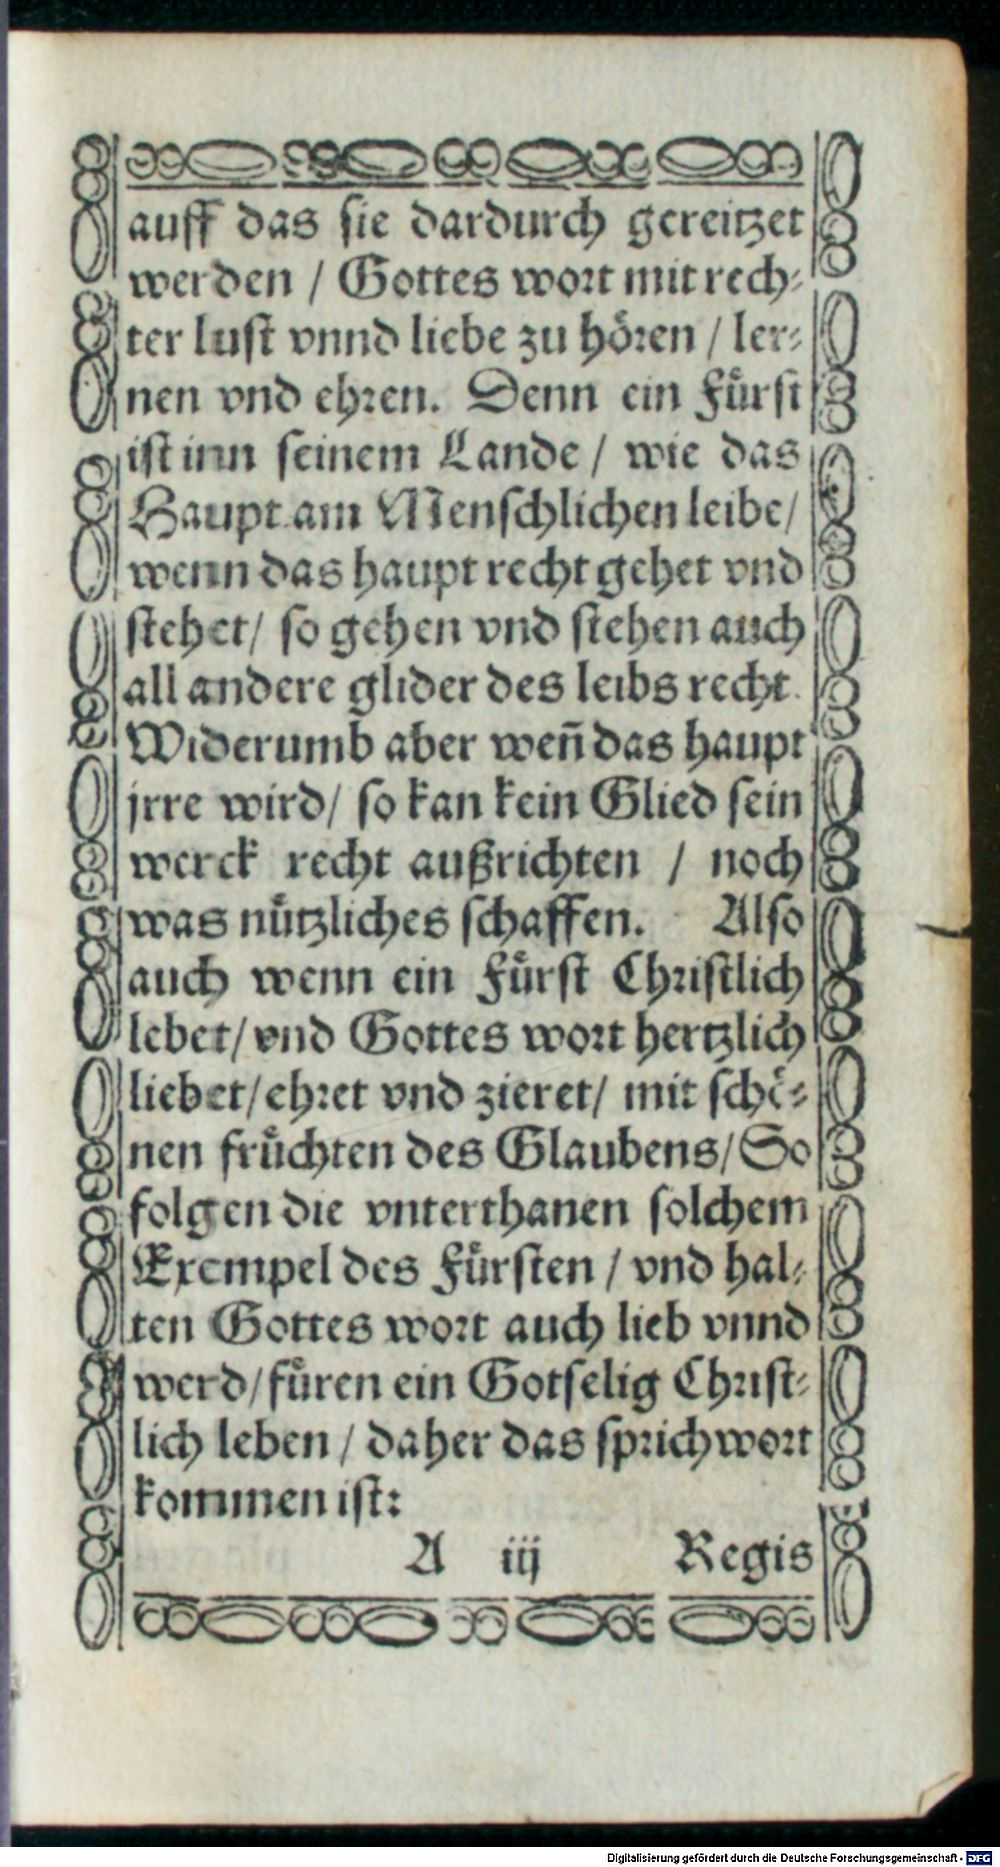 auff das sie dardurch gereitzet
werden / Gottes wort mit rech⸗
ter lust vnnd liebe zu hoͤren / ler⸗
nen vnd ehren. Denn ein Fuͤrst
ist inn seinem Lande / wie das
Haupt am Menschlichen leibe /
wenn das haupt recht gehet vnd
stehet / so gehen vnd stehen auch
all andere glider des leibs recht.
Widerumb aber wen̄ das haupt
jrre wird / so kan kein Glied sein
werck recht außrichten / noch
was nuͤtzliches schaffen. Also
auch wenn ein Fuͤrst Christlich
lebet / vnd Gottes wort hertzlich
liebet / ehret vnd zieret / mit schoͤ⸗
nen fruͤchten des Glaubens / So
folgen die vnterthanen solchem
Exempel des Fuͤrsten / vnd hal⸗
ten Gottes wort auch lieb vnnd
werd / fuͤren ein Gotselig Christ⸗
lich leben / daher das sprichwort
kommen ist:
A iij Regis
Digitalisierung gefördert durch die Deutsche Forschungsgemeinschaft - DFG